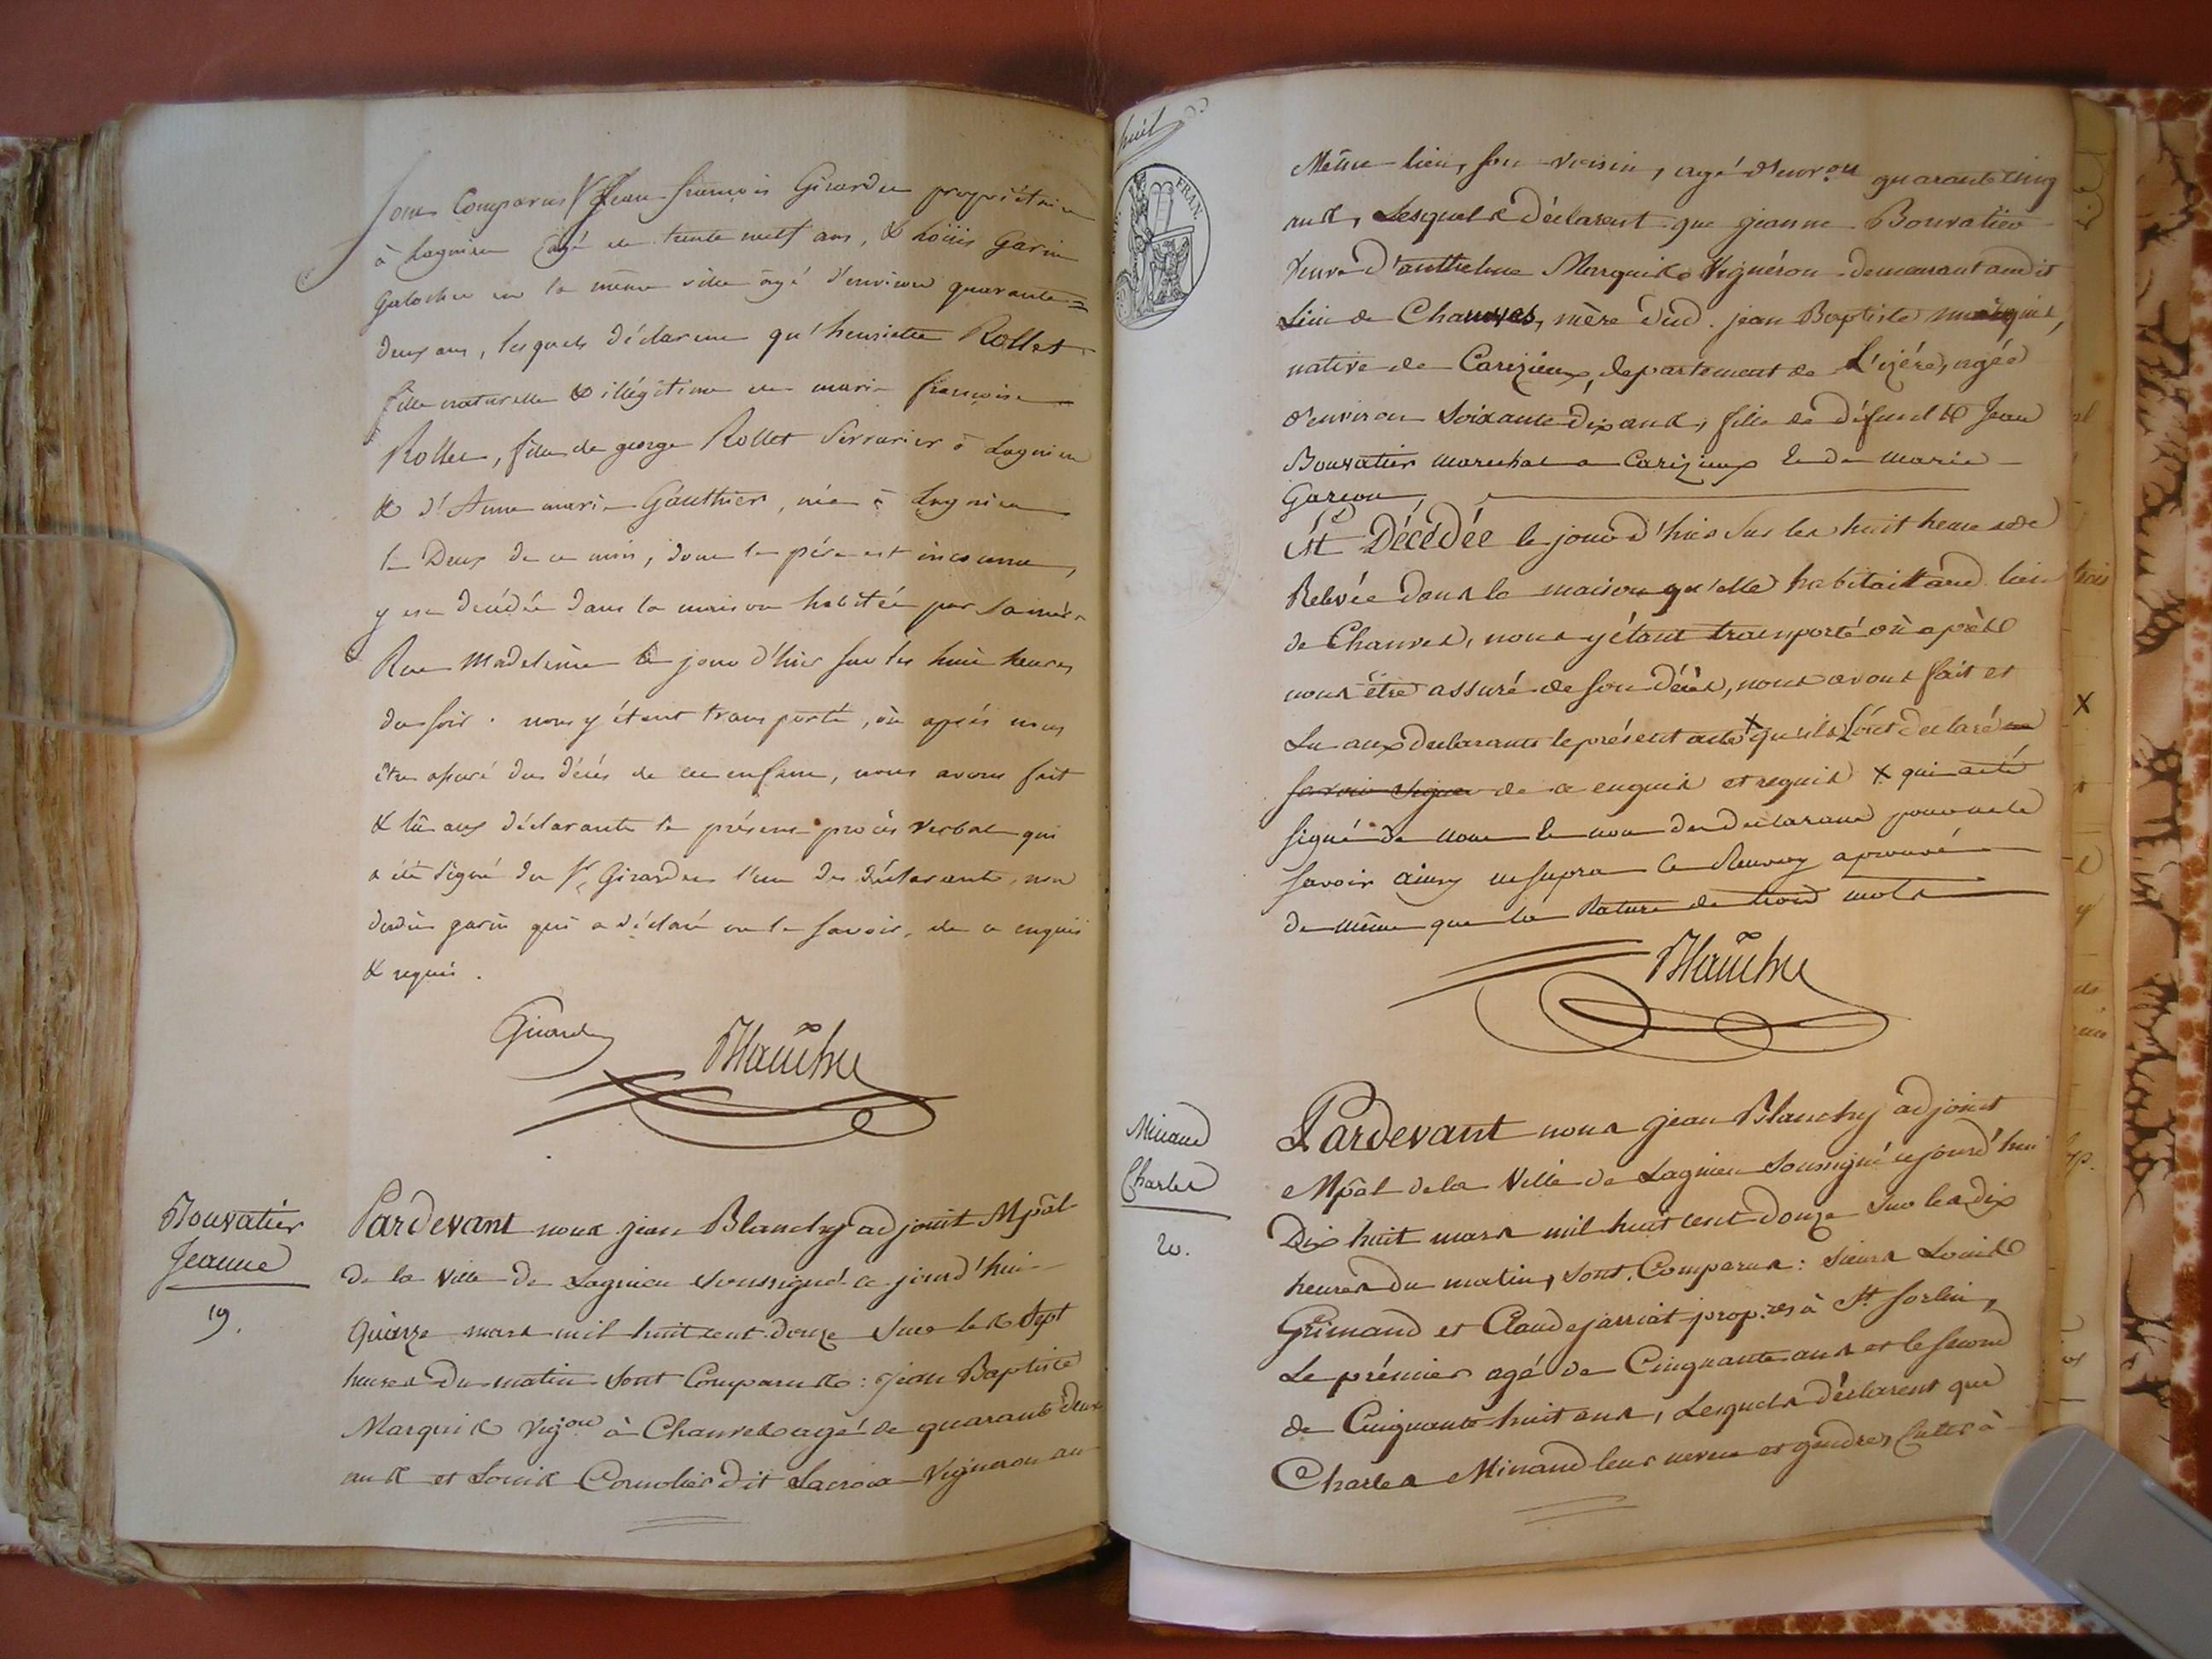 sont Comparus Sr Jean françois Girardin propriétaire
à Lagnieu âgé de trente neuf ans, & Loüis Garin
galocher en la même ville âgé d'environ quarante=
deux ans, lesquels déclarent qu'henriette Rollet
fille naturelle & illégitime de marie françoise
Rollet, fille de george Rollet Serrurier à Lagnieu
& d'Anne marie Gauthier, née à Lagnieu
le Deux de ce mois, dont le père est inconnu,
y est décédée dans la maison habitée par sa mère
Rue Madeleine le jour d'hier sur les huit heures
du soir. nous y étant transporté, où après nous
être assuré du décès de cet enfant, nous avons fait
& lû aux déclarants le présent procès verbal qui
a été signé du Sr Girardin l'un des déclarants, non
dudit garin qui a déclaré ne le savoir, de ce enquis
& requis.
Girardin
Blanchy
Bouvatier
Jeanne
19.
Pardevant nous jean Blanchy adjoint Mpâl
de la Ville de Lagnieu soussigné ce jourd'hui
Quinze mars mil huit cent douze sur les sept
heures du matin sont Comparus : Jean Baptiste
Marquis vigon à Chanves agé de quarante deux
ans et Louis Cornolier dit Lacroix Vigneron au
huit
FRAN.
Même lieu, son voisin, agé d'environ quarante cinq
ans, Lesquels déclarent que jeanne Bouvatier
Veuve d'anthelme Marquis Vignéron demeurant audit
Lieu de Chanves, mère dud. jean Baptiste marquis,
native de Carizieux, departement de L'izére, agée
d'environ Soixante dix ans, fille de défunts Jean
Bouvatier marechal a Carizieux et de marie
Garcon,
Est Décédée le jour d'hier sur les huit heures de
Relevée dans la maison qu'elle habitait aud. lieu
de Chanves, nous y étant transporté où après
nous être assuré de son décès, nous avons fait et
Lu aux declarants le présent acte X qu'ils ont declaré ne
savoir signer de ce enquis et requis X qui a été
signé de nous et non des declarans pour ne le
savoir ainsy ut supra Ce Renvoy aprouvé
de même que la Rature de trois mots
Blanchy
Minand
Charles
20.
Pardevant nous Jean Blanchy adjoint
Mpâl de la Ville de Lagnieu soussigné ce jourd'hui
Dix huit mars mil huit cent douze sur les dix
heures du matin, sont Comparus : sieurs Louis
Grimand et Claude jarriat prop.res à St. Sorlin,
Le prémier agé de Cinquante ans et le second
de Cinquante huit ans, Lesquels déclarent que
Charles Minand leur neveu et gendre, Cultr à